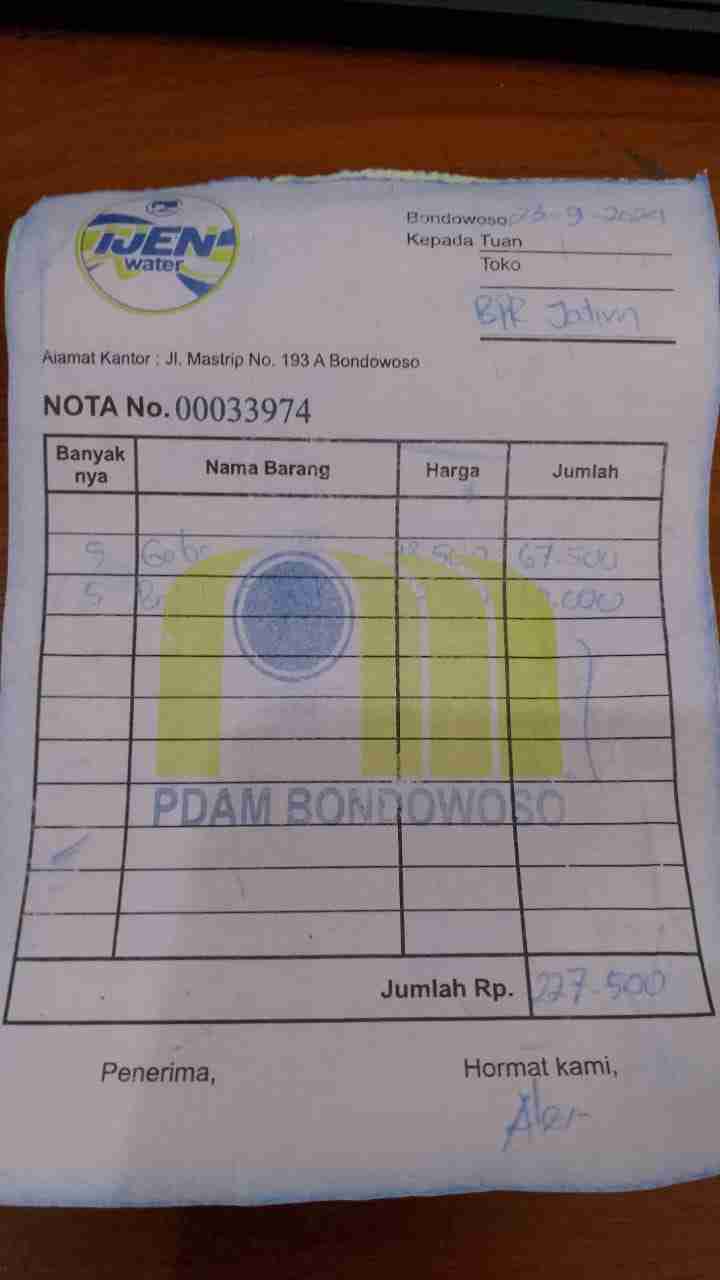 IJEN
water
Bondowoso, 23-9-2024
Kepada Tuan
Toko
BPR Jatim
Alamat Kantor : Jl. Mastrip No. 193 A Bondowoso
NOTA No. 00033974
Banyak nya Nama Barang Harga Jumlah
5 67.500
5
PDAM BONDOWOSO
Jumlah Rp. 227.500
Penerima, Hormat kami,